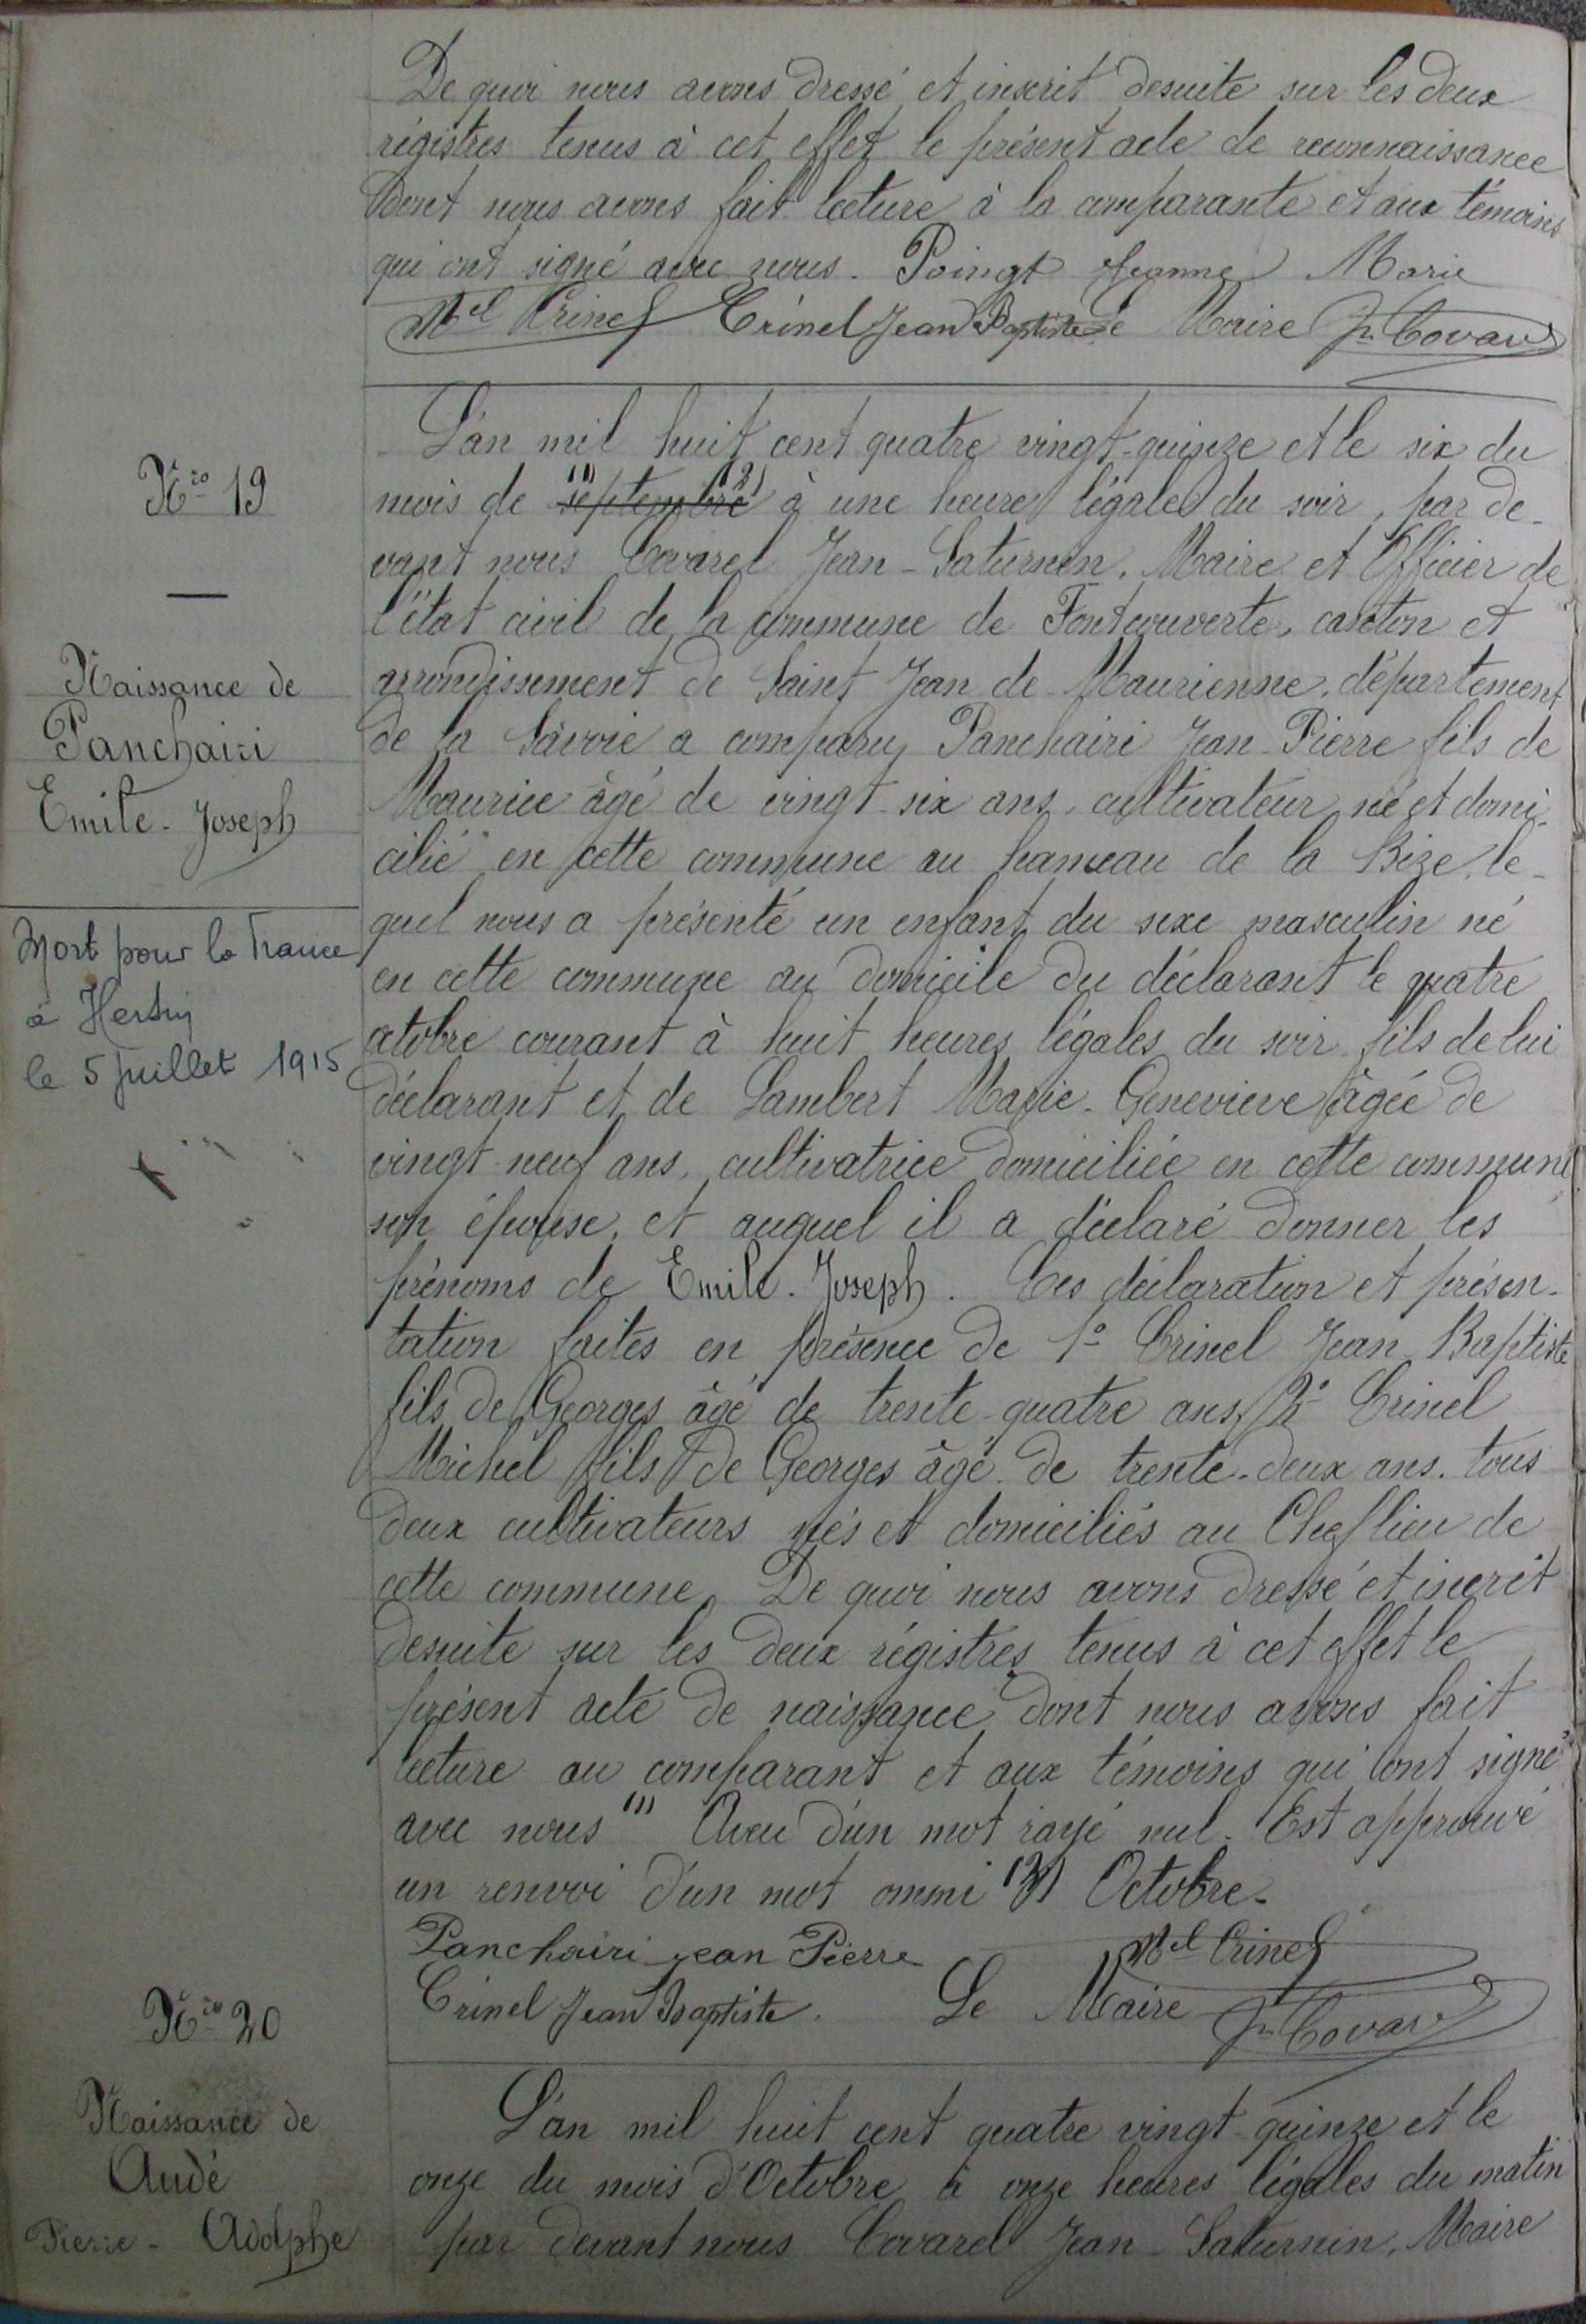 De quoi nous avons dressé et inscrit desuite sur les deux
régistres tenus à cet effet le présent acte de reconnaissance
dont nous avons fait lecture à la comparante et aux témoins
qui ont signé avec nous. Poingt Jeanne Marie
Mel Crinel Crinel Jean Baptiste Le Maire Jn Covarel
Nro 19
Naissance de
Panchairi
Emile - Joseph
Mort pour la France
à Hersin
le 5 Juillet 1915
L'an mil huit cent quatre vingt-quinze et le six du
mois de (1) septembre (2) à une heure légale du soir, par de-
vant nous Covarel Jean-Saturnin, Maire et Officier de
l'état civil de la commune de Fontcouverte, canton et
arrondissement de Saint Jean de Maurienne, département
de la Savoie a comparu Panchairi Jean-Pierre fils de
Maurice âgé de vingt-six ans, cultivateur, né et domi-
cilié en cette commune au hameau de la Bise, le-
quel nous a présenté un enfant du sexe masculin né
en cette commune au domicile du déclarant le quatre
octobre courant à huit heures légales du soir fils de lui
déclarant et de Lambert Marie-Geneviève âgée de
vingt neuf ans, cultivatrice domiciliée en cette commune
son épouse, et auquel il a déclaré donner les
prénoms de Emile-Joseph. Ces déclaration et présen-
tation faites en présence de 1º Crinel Jean Baptiste
fils de Georges âgé de trente-quatre ans, 2º Crinel
Michel fils de Georges âgé de trente-deux ans, tous
deux cultivateurs nés et domiciliés au Chef lieu de
cette commune. De quoi nous avons dressé et inscrit
desuite sur les deux régistres tenus à cet effet le
présent acte de naissance dont nous avons fait
lecture au comparant et aux témoins qui ont signé
avec nous (1) Aveu d'un mot rayé nul. Est approuvé
un renvoi d'un mot ommi (2) Octobre.
Panchairi jean Pierre Mel Crinel
Crinel Jean Baptiste. Le Maire Jn Covarel
Nro 20
Naissance de
Audé
Pierre - Adolphe
L'an mil huit cent quatre vingt-quinze et le
onze du mois d'Octobre à onze heures légales du matin
par devant nous Covarel Jean-Saturnin, Maire